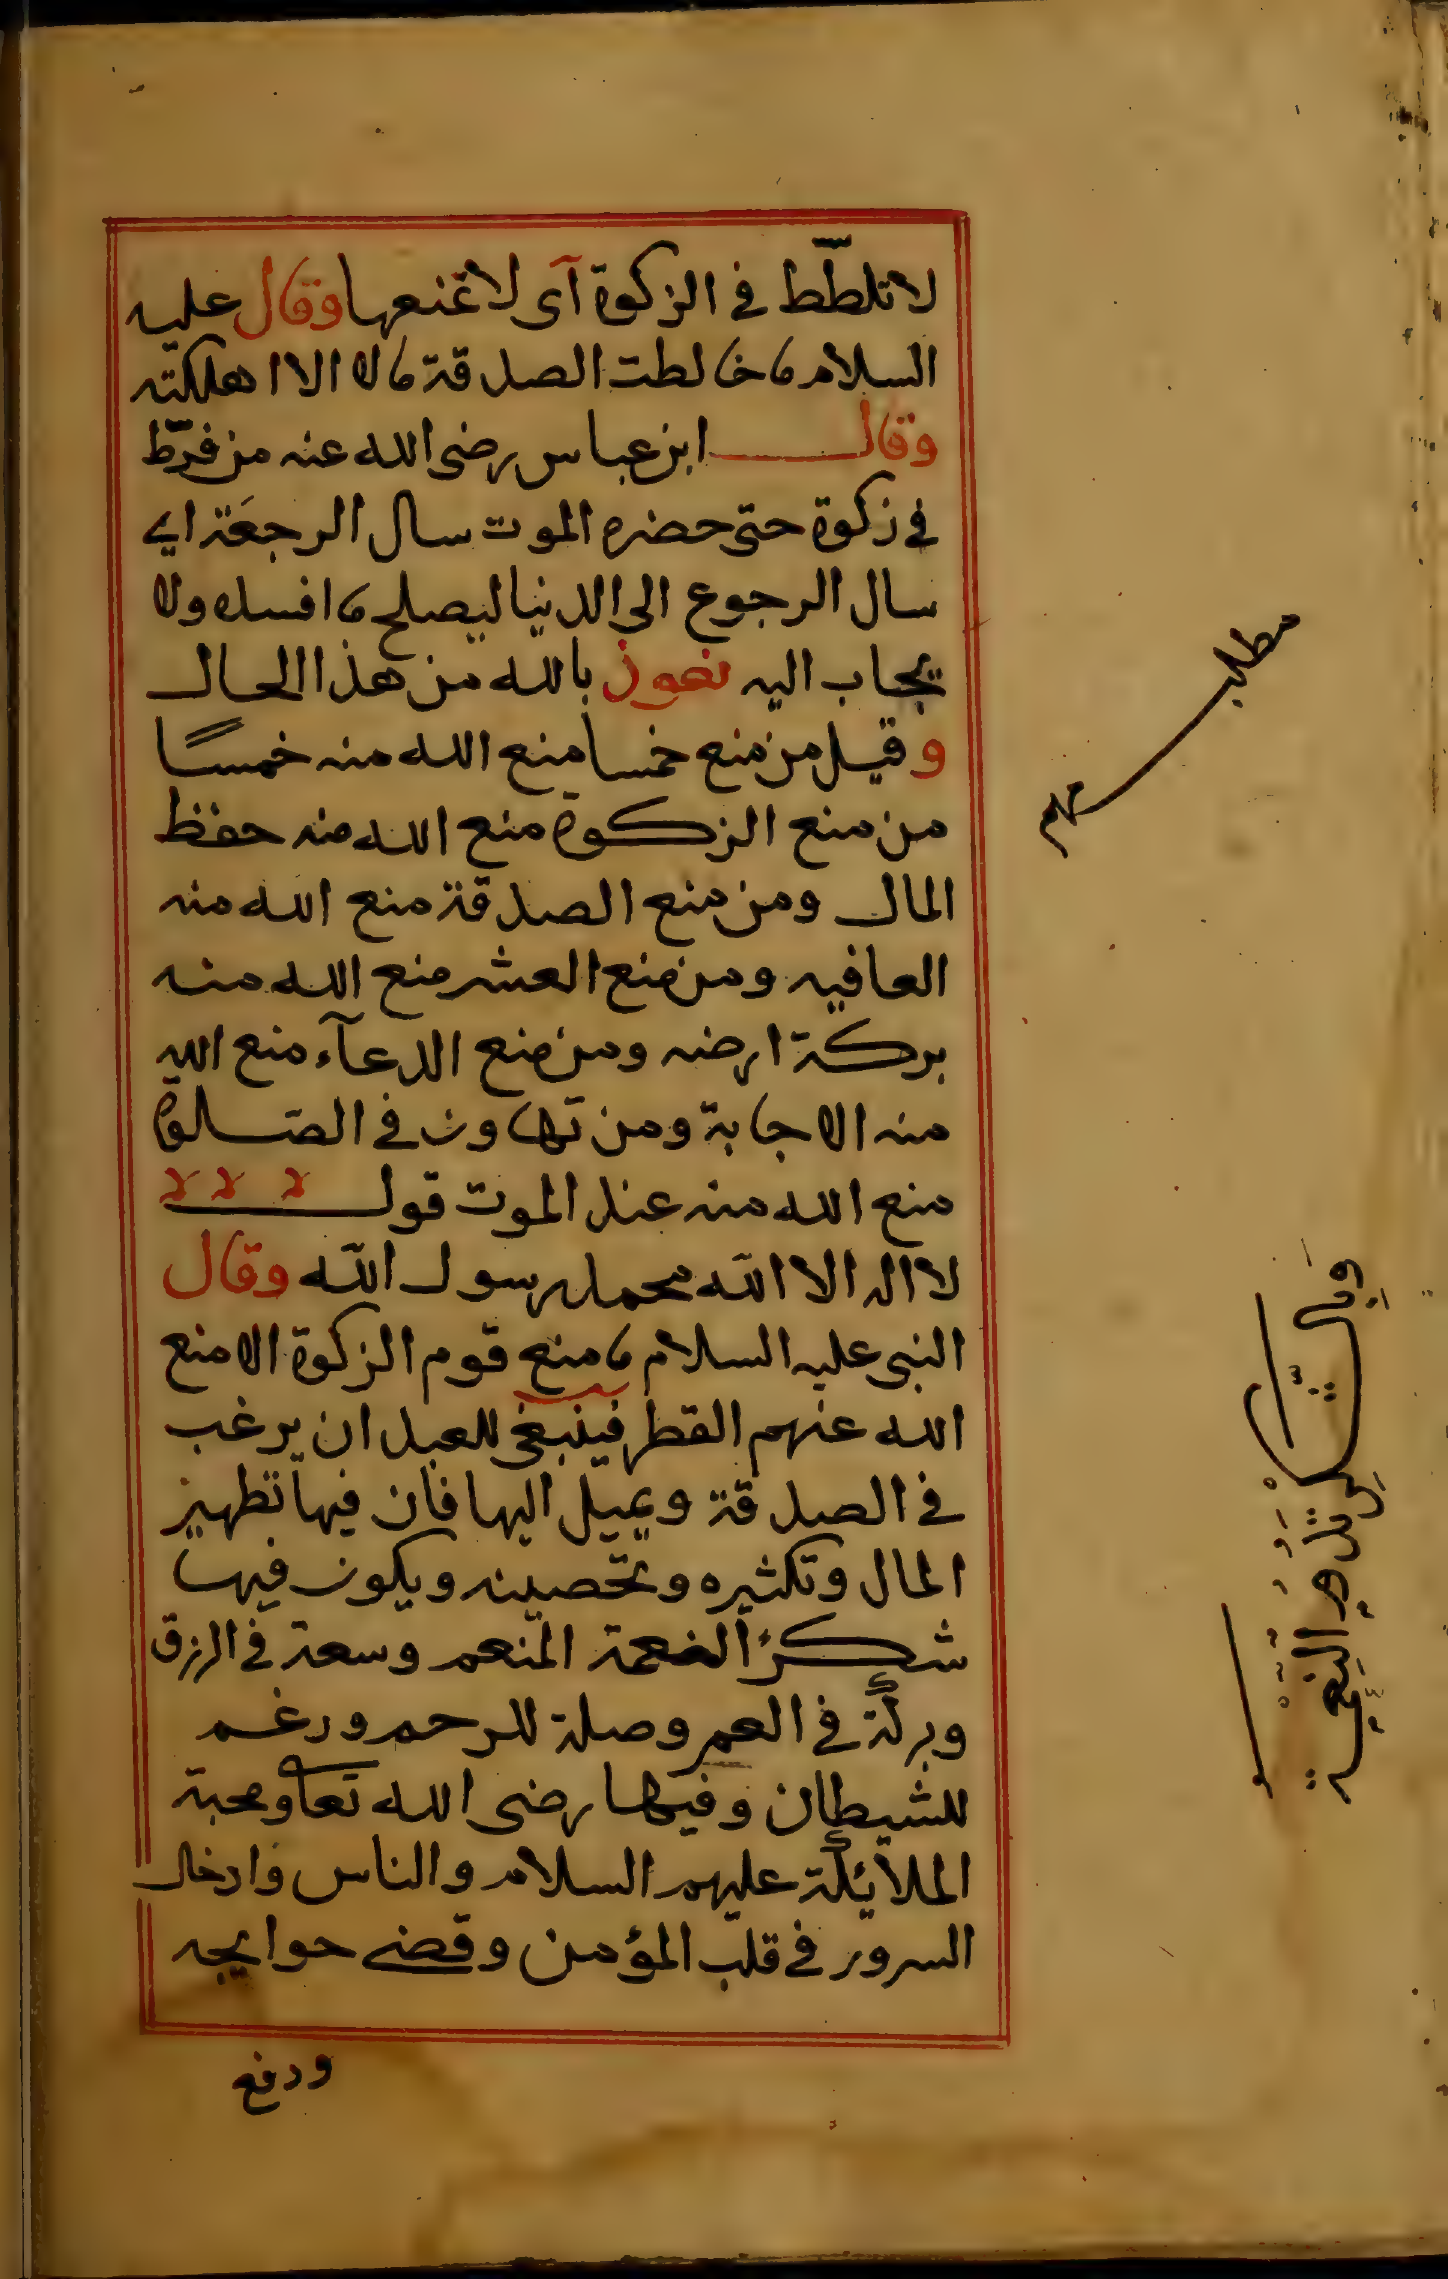 لا تلطّط في الزكوة آى لا تمنعها وقال عليه
السلام ما خالطت الصدقة مالا الا اهلكته
وقال ابن عباس رضى الله عنه من فرّط
في زكوة حتى حضره الموت سال الرجعَة اي
سال الرجوع الى الدنيا ليصلح ما افسده ولا
يجاب اليه نعوذ بالله من هذا الحال
وقيل من منع خمسا منع الله منه خمسًا
من منع الزكوة منع الله منه حفظ
المال ومن منع الصدقة منع الله منه
العافيه ومن منع العشر منع الله منه
بركة ارضه ومن منع الدعآء منع الله
منه الاجابة ومن تهاون في الصّلوة
منع الله منه عند الموت قول
لا اله الا الله محمد رسول الله وقال
النبى عليه السلام ما منع قوم الزكوة الا منع
الله عنهم القطر فينبغى للعبد ان يرغب
في الصدقة ويميل اليها فان فيها تطهير
المال وتكثيره وتحصينه ويكون فيها
شكرُ النعمة المنعم وسعة في الرزق
وبركة في العمر وصلة للرحم ورغم
للشيطان وفيها رضى الله تعا ومحبة
الملائكة عليهم السلام والناس وادخال
السرور في قلب المؤمن وقضى حوايجه
ودفع
مطلب
مهم
النعمة